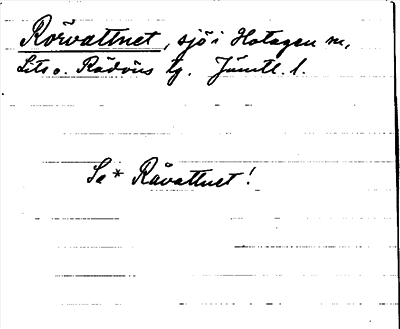 Rörvattnet, sjö i Hotagen sn,
Lits o. Rödöns tg. Jämtl. l.
Se * Råvattnet!